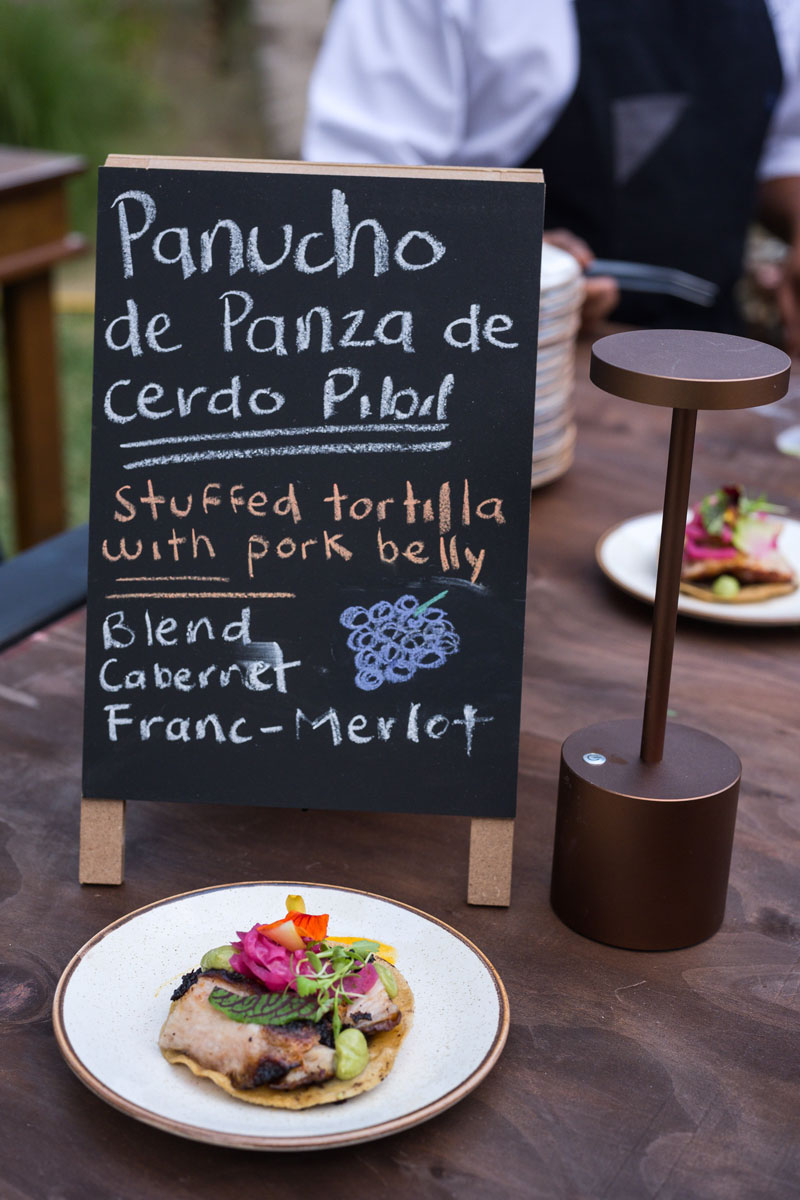 Panucho
de Panza de
cerdo Pibil
Stuffed tortilla
with pork belly
Blend
Cabernet
Franc-Merlot